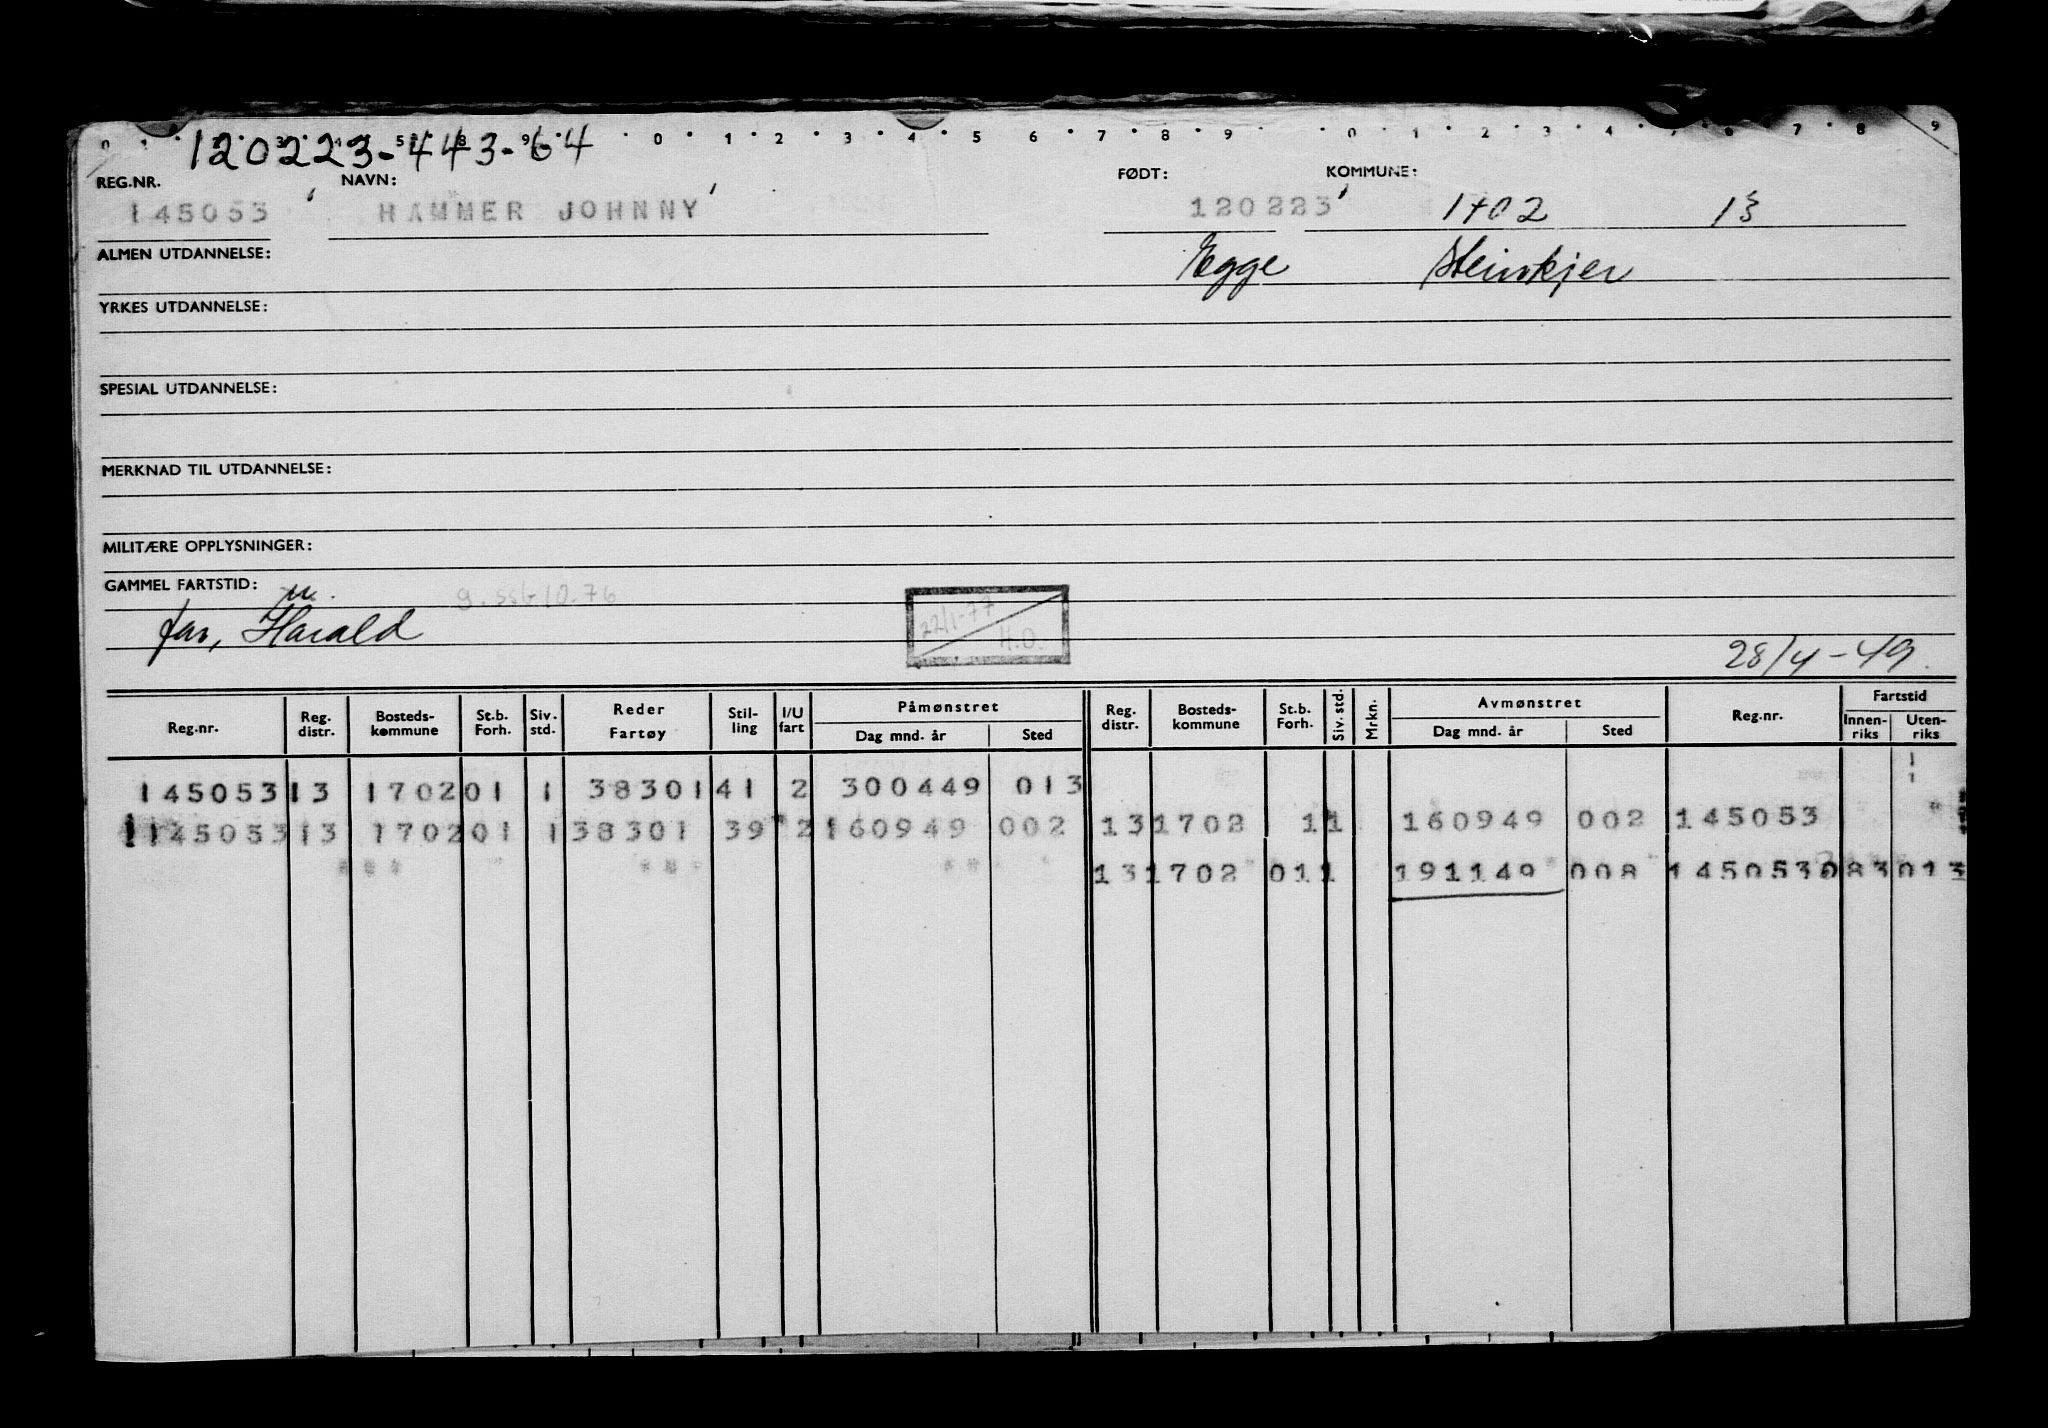 120223-443-64
0 1 2 3 4 5 6 7 8 9 0 1 2 3 4 7 8 9
REG.NR. NAVN: FØDT: KOMMUNE:
145053 HAMMER JOHNNY 120223 1702 13
ALMEN UTDANNELSE: Egge Steinkjer
YRKES UTDANNELSE:
SPESIAL UTDANNELSE:
MERKNAD TIL UTDANNELSE:
MILITÆRE OPPLYSNINGER:
GAMMEL FARTSTID:
far, Harald 22/1-77 H.O. 28/4-49.
Reg.nr. Reg. distr. Bosteds-kommune St.b. Forh. Siv. std. Reder Fartøy Stil-ling I/U fart Påmønstret Dag mnd. år Sted Reg. distr. Bosteds-kommune St.b. Forh. Siv. std. Mrkn. Avmønstret Dag mnd. år Sted Reg.nr. Fartstid Innen-riks Uten-riks
145053 13 1702 01 1 38301 41 2 300449 013
145053 13 1702 01 1 38301 39 2 160949 002 13 1702 1 1 160949 002 145053
13 1702 01 1 191149 008 145053 083 013